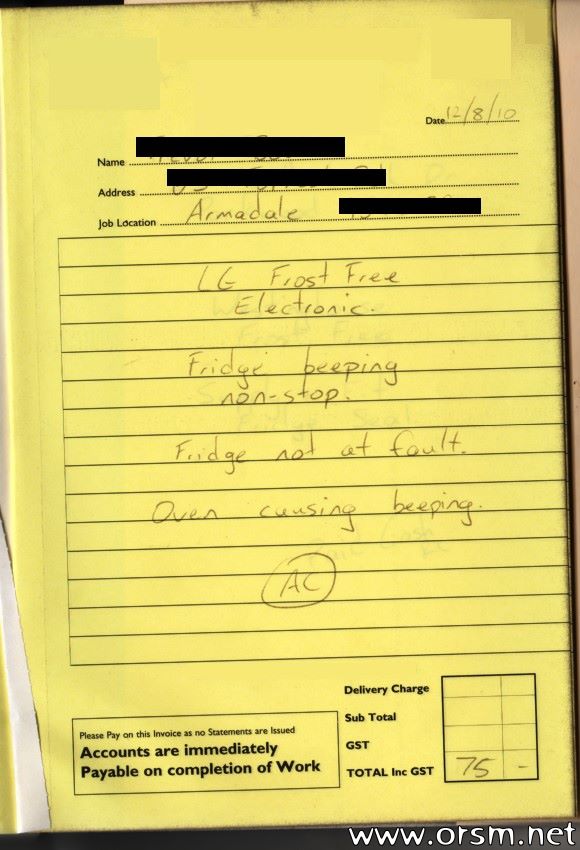 Date 12/8/10
Name
Address
Job Location Armadale
LG Frost Free
Electronic.
Fridge beeping
non-stop.
Fridge not at fault.
Oven causing beeping.
AC
Delivery Charge
Sub Total
GST
TOTAL Inc GST 75 -
Please Pay on this Invoice as no Statements are Issued
Accounts are immediately
Payable on completion of Work
www.orsm.net